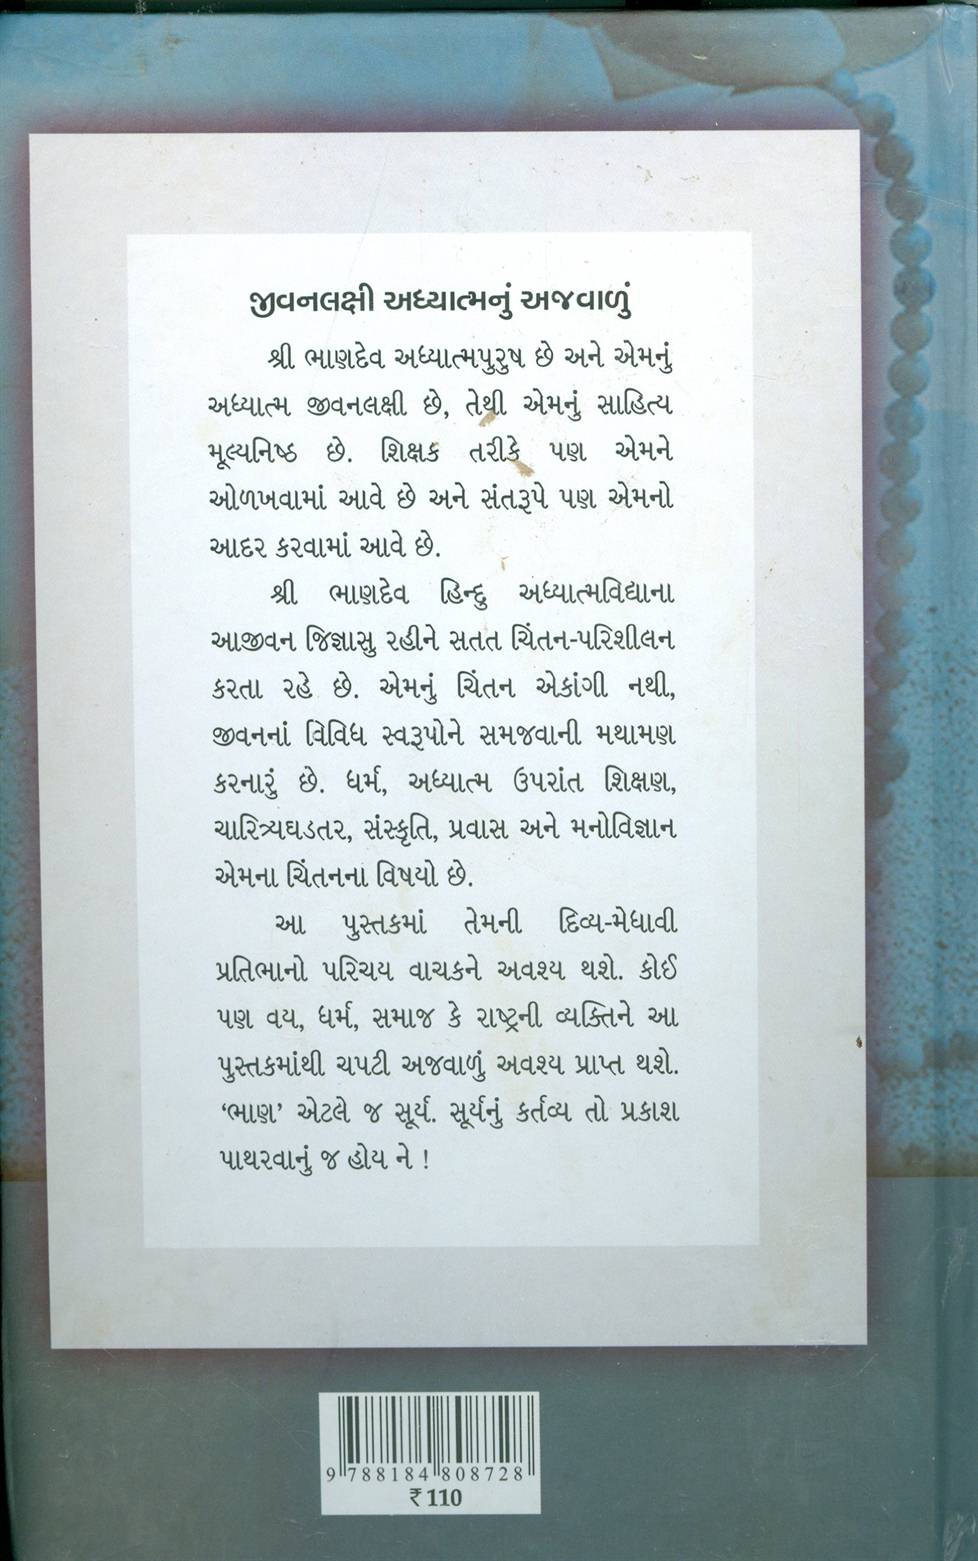 જીવનલક્ષી અધ્યાત્મનું અજવાળું
શ્રી ભાણદેવ અધ્યાત્મપુરુષ છે અને એમનું
અધ્યાત્મ જીવનલક્ષી છે, તેથી એમનું સાહિત્ય
મૂલ્યનિષ્ઠ છે. શિક્ષક તરીકે પણ એમને
ઓળખવામાં આવે છે અને સંતરૂપે પણ એમનો
આદર કરવામાં આવે છે.
શ્રી ભાણદેવ હિન્દુ અધ્યાત્મવિદ્યાના
આજીવન જિજ્ઞાસુ રહીને સતત ચિંતન-પરિશીલન
કરતા રહે છે. એમનું ચિંતન એકાંગી નથી,
જીવનનાં વિવિધ સ્વરૂપોને સમજવાની મથામણ
કરનારું છે. ધર્મ, અધ્યાત્મ ઉપરાંત શિક્ષણ,
ચારિત્ર્યઘડતર, સંસ્કૃતિ, પ્રવાસ અને મનોવિજ્ઞાન
એમના ચિંતનના વિષયો છે.
આ પુસ્તકમાં તેમની દિવ્ય-મેધાવી
પ્રતિભાનો પરિચય વાચકને અવશ્ય થશે. કોઈ
પણ વય, ધર્મ, સમાજ કે રાષ્ટ્રની વ્યક્તિને આ
પુસ્તકમાંથી ચપટી અજવાળું અવશ્ય પ્રાપ્ત થશે.
‘ભાણ’ એટલે જ સૂર્ય. સૂર્યનું કર્તવ્ય તો પ્રકાશ
પાથરવાનું જ હોય ને !
9 788184 808728
₹ 110